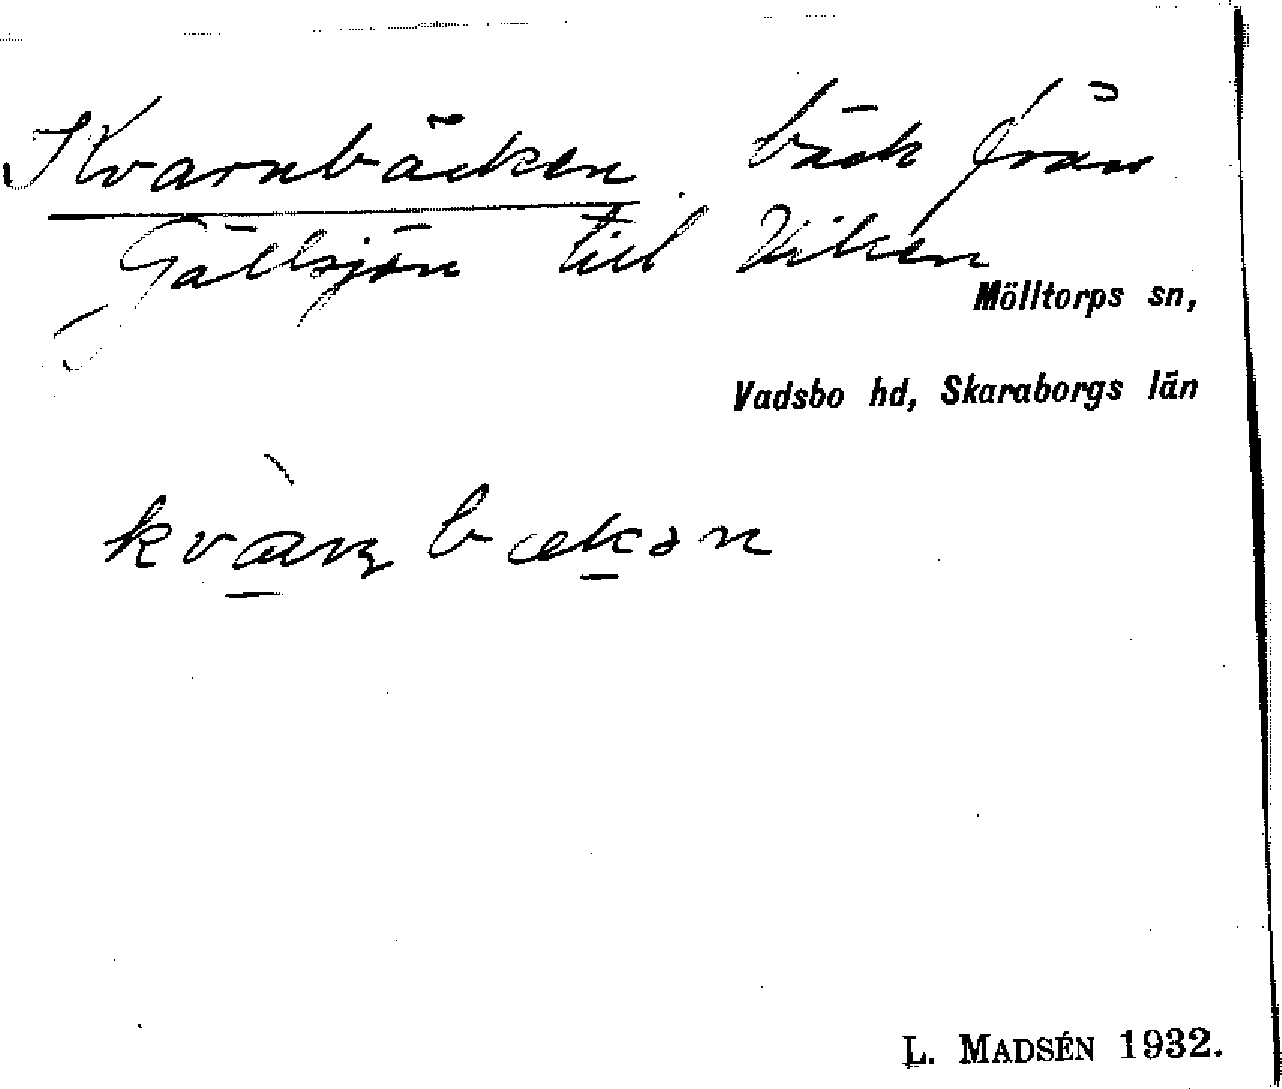 Kvarnbäcken, bäck från
Gällsjön till Viken
Mölltorps sn,
Vadsbo hd, Skaraborgs län
L. MADSÉN 1932.